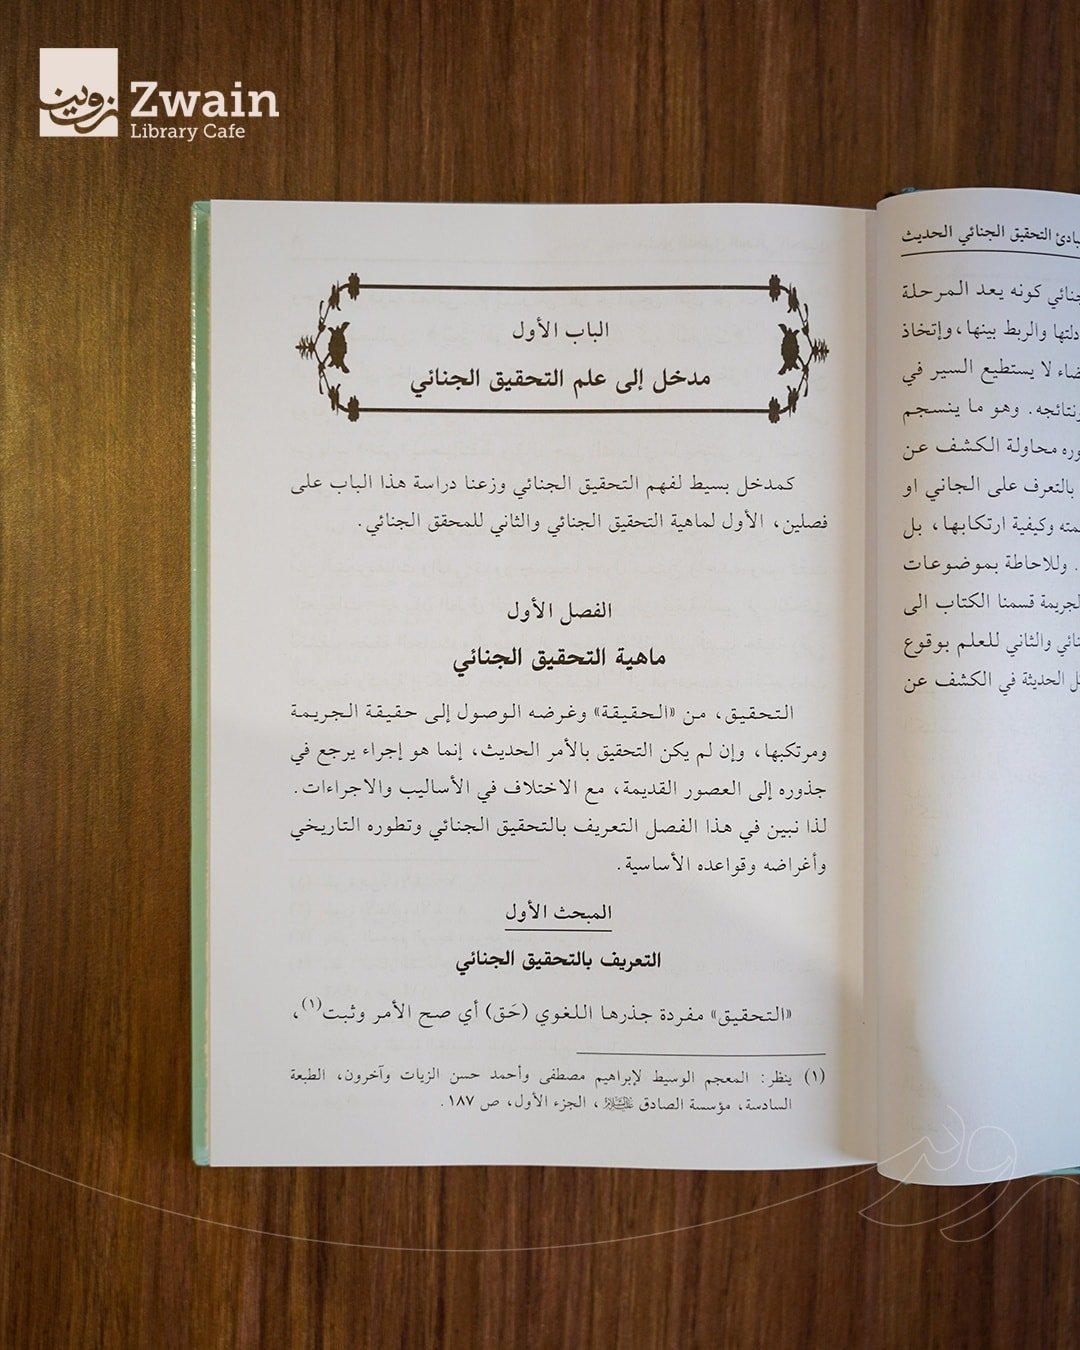 زوين
Zwain
Library Cafe
مبادئ التحقيق الجنائي الحديث
الجنائي كونه يعد المرحلة
والربط بينها، وإتخاذ
لا يستطيع السير في
ونتائجه. وهو ما ينسجم
محاولة الكشف عن
بالتعرف على الجاني او
وكيفية ارتكابها، بل
. وللاحاطة بموضوعات
الجريمة قسمنا الكتاب الى
والثاني للعلم بوقوع
الحديثة في الكشف عن
الباب الأول
مدخل إلى علم التحقيق الجنائي
كمدخل بسيط لفهم التحقيق الجنائي وزعنا دراسة هذا الباب على
فصلين، الأول لماهية التحقيق الجنائي والثاني للمحقق الجنائي.
الفصل الأول
ماهية التحقيق الجنائي
التحقيق، من «الحقيقة» وغرضه الوصول إلى حقيقة الجريمة
ومرتكبها، وإن لم يكن التحقيق بالأمر الحديث، إنما هو إجراء يرجع في
جذوره إلى العصور القديمة، مع الاختلاف في الأساليب والاجراءات.
لذا نبين في هذا الفصل التعريف بالتحقيق الجنائي وتطوره التاريخي
وأغراضه وقواعده الأساسية.
المبحث الأول
التعريف بالتحقيق الجنائي
«التحقيق» مفردة جذرها اللغوي (حَق) أي صح الأمر وثبت(١)،
(١) ينظر: المعجم الوسيط لإبراهيم مصطفى وأحمد حسن الزيات وآخرون، الطبعة
السادسة، مؤسسة الصادق عليه السلام، الجزء الأول، ص ١٨٧.